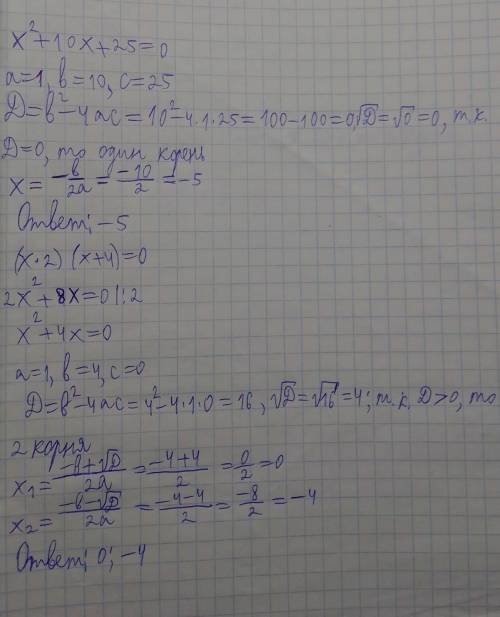 x²+10x+25=0
a=1, b=10, c=25
D=b²-4ac=10²-4·1·25=100-100=0, √D=√0=0, т.к.
D=0, то один корень
x=-b/2a=-10/2=-5
Ответ: -5
(x·2)(x+4)=0
2x²+8x=0|:2
x²+4x=0
a=1, b=4, c=0
D=b²-4ac=4²-4·1·0=16, √D=√16=4; т.к. D>0, то
2 корня
x₁=-b+√D/2a=-4+4/2=0/2=0
x₂=-b-√D/2a=-4-4/2=-8/2=-4
Ответ: 0; -4